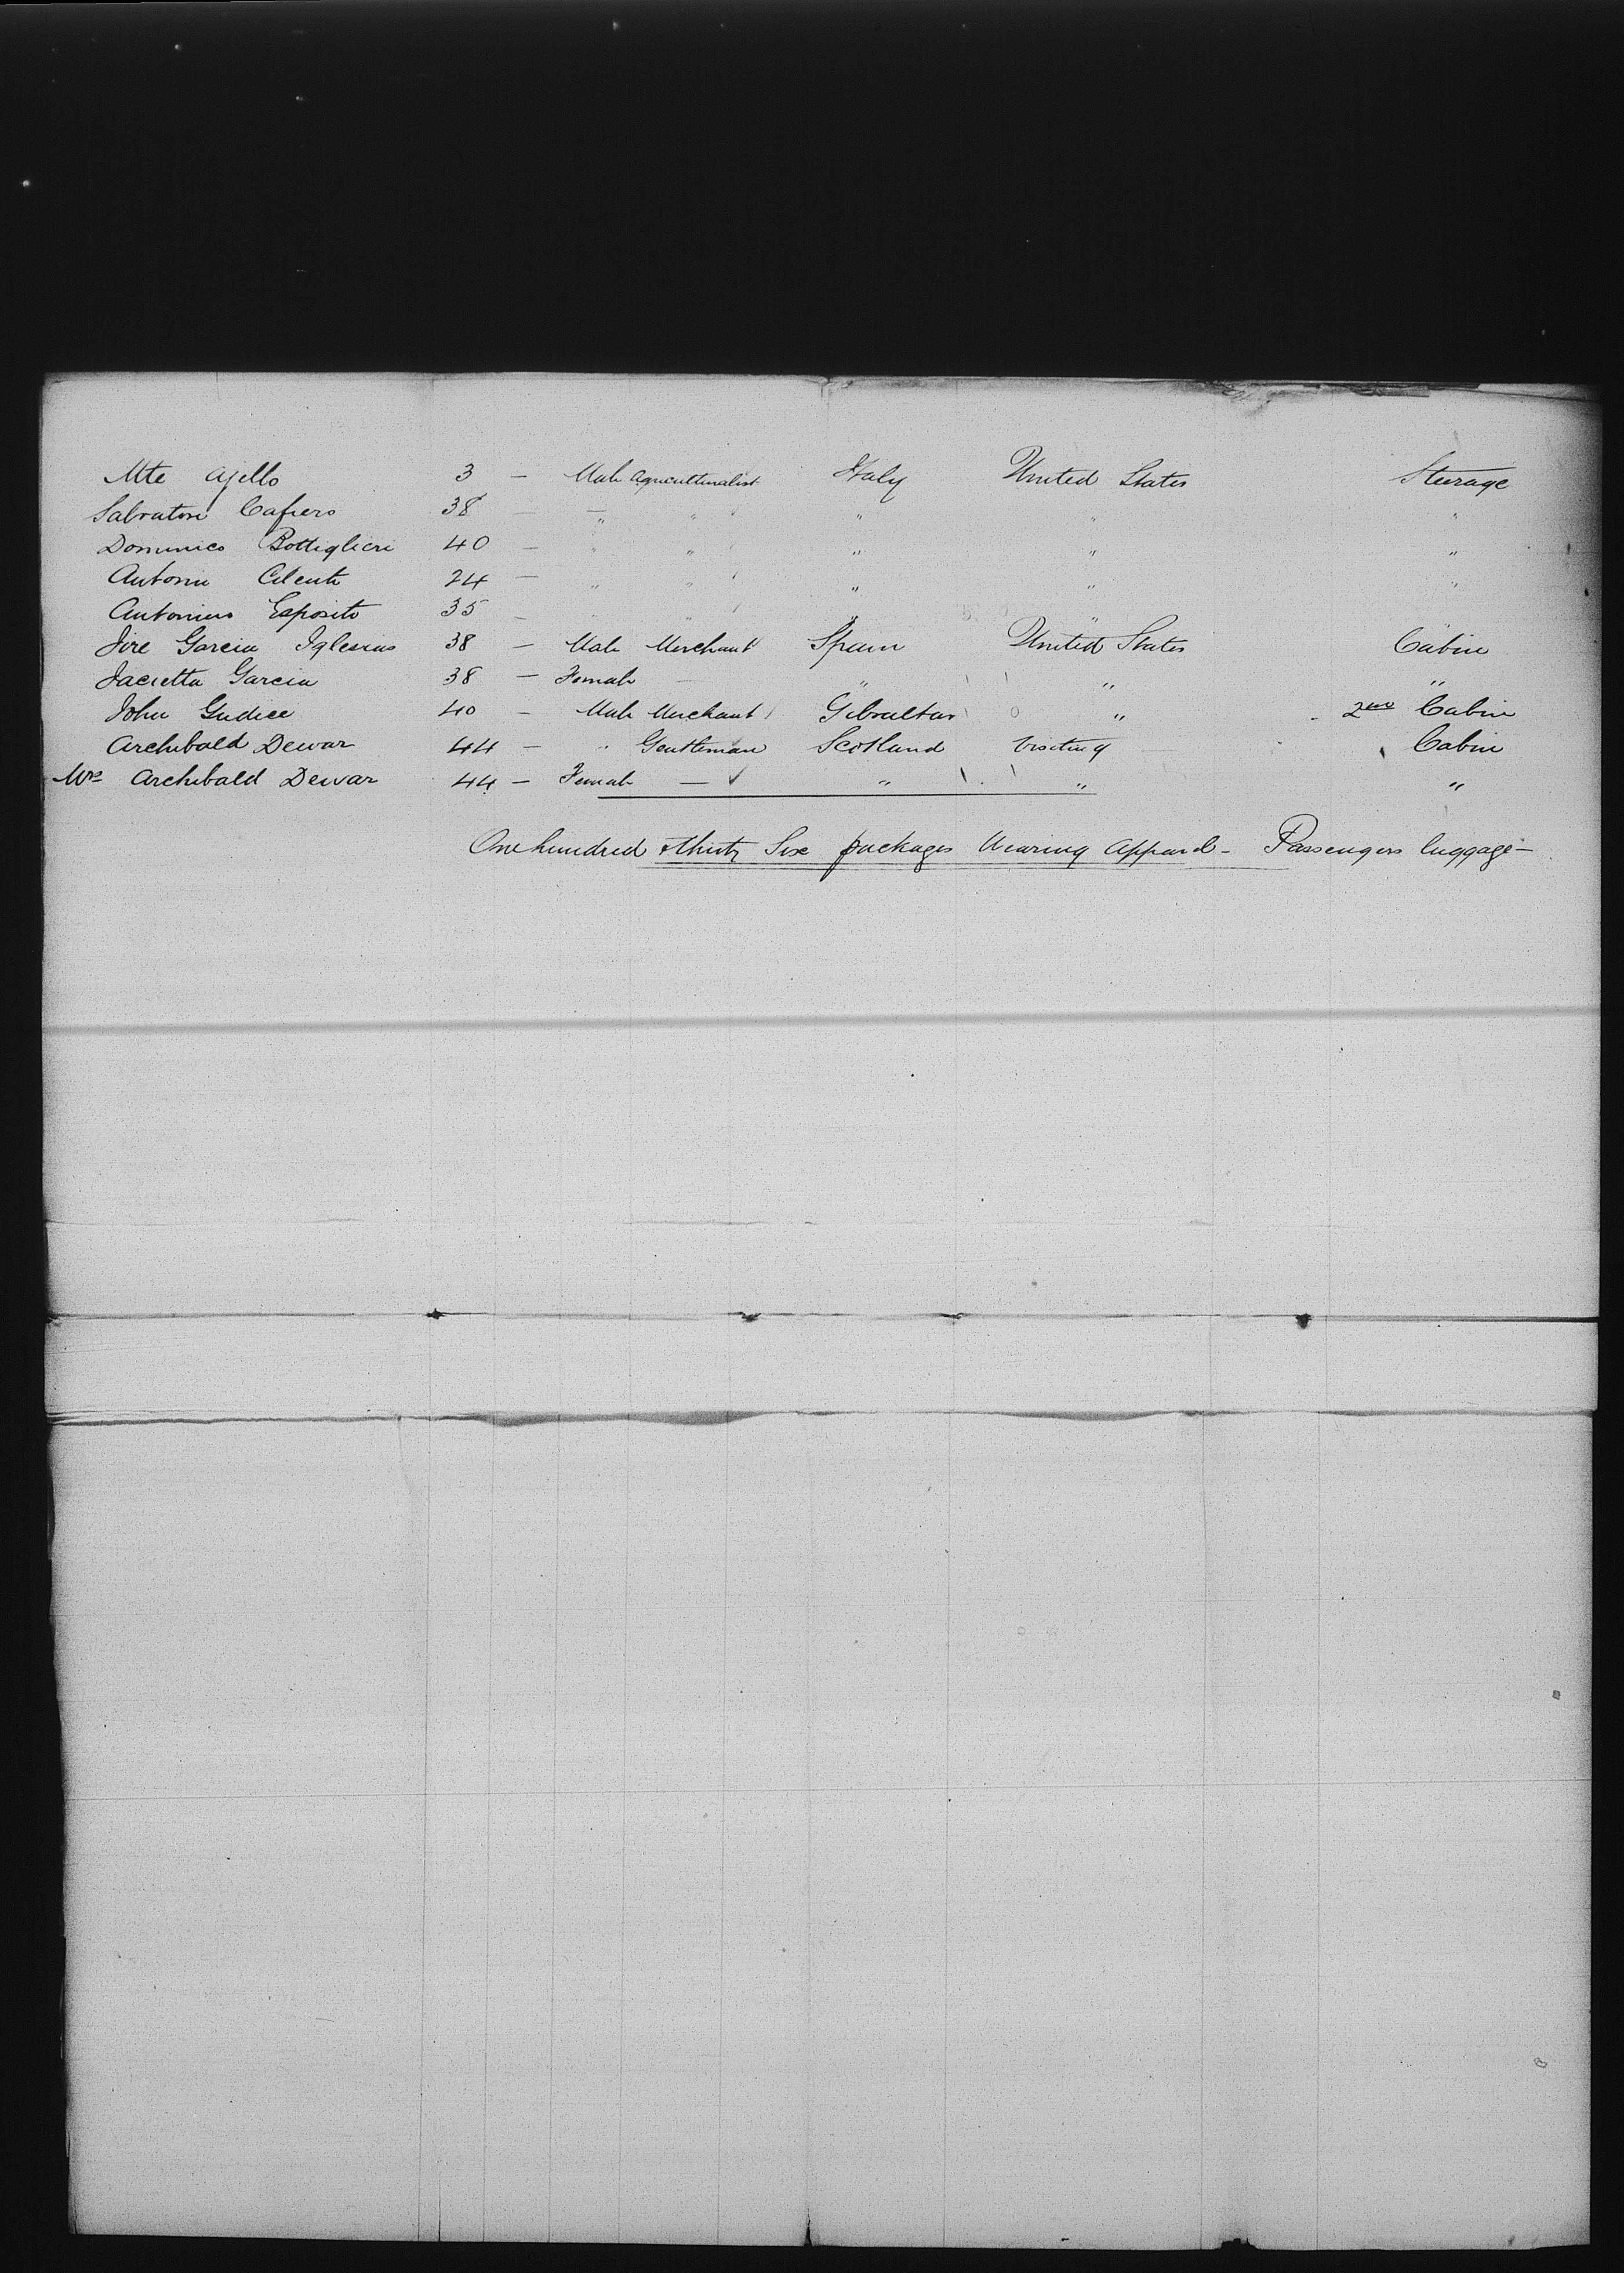 Mte Ajello 3 — Male Agriculturalist Italy United States Steerage
Salvatore Cafiero 38 — " " " " "
Dominico Bottiglieri 40 — " " " " "
Antonio Cilento 24 — " " " " "
Antonino Esposito 35 — " " " "
Garcia Iglesias 38 — Male Merchant Spain United States Cabin
Garcia 38 — Female — " " "
John Gudice 40 — Male Merchant Gibraltar " 2nd Cabin
Archibald Dewar 44 — " Gentleman Scotland Visiting Cabin
Mrs Archibald Dewar 44 — Female — " " "
One hundred & thirty Six packages Wearing Apparel - Passengers luggage -